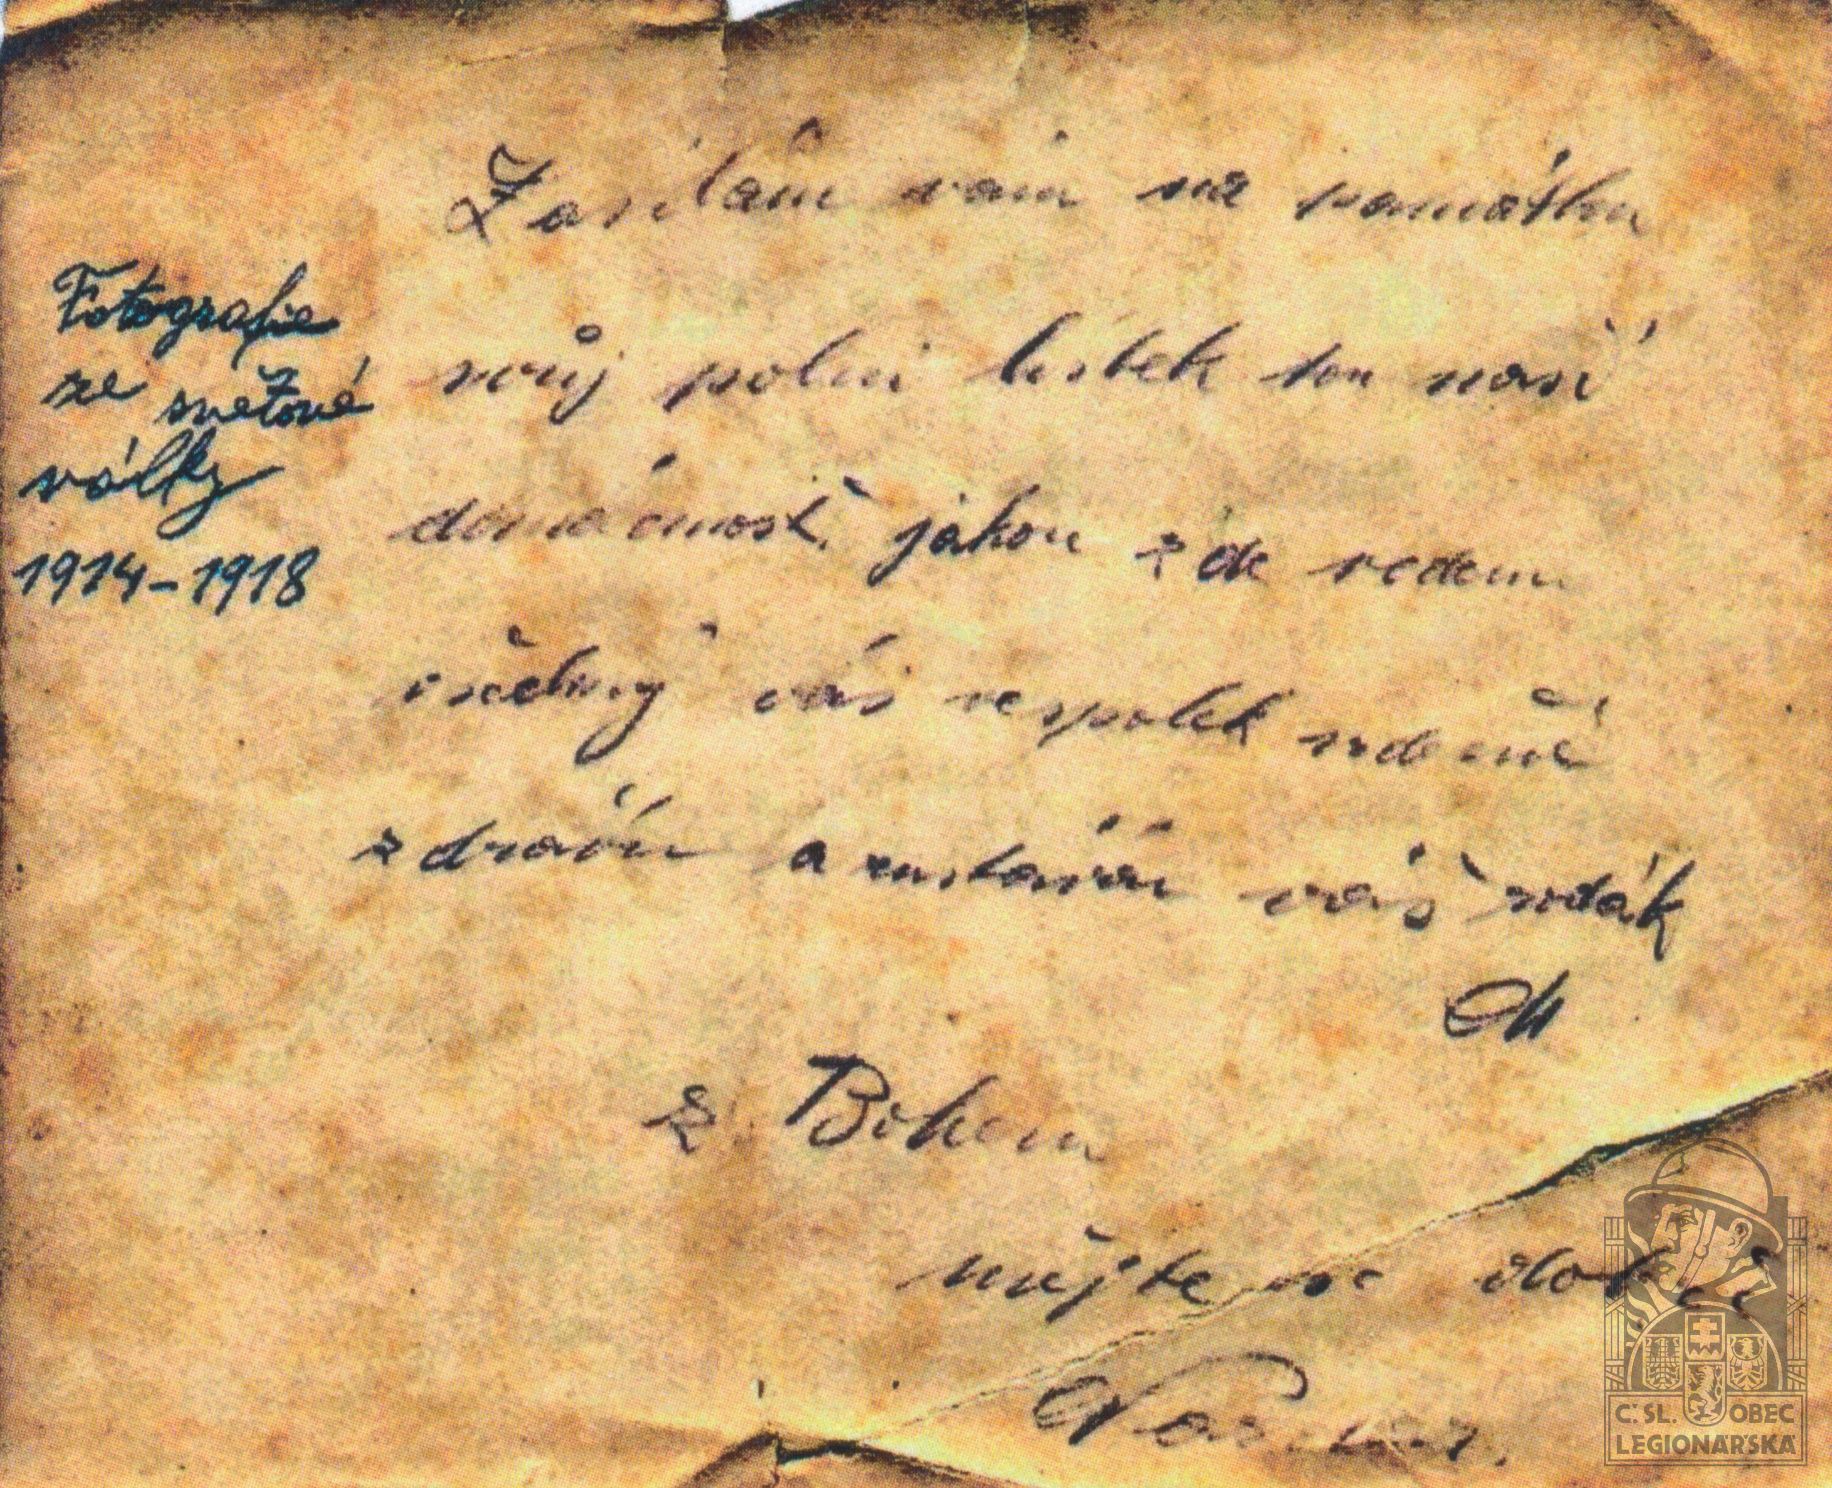 Fotografie
ze světové
války
1914-1918
Zasílám vám na památku
svůj polní lístek tou naší
domácnost jakou zde vedem
všechny vás vespolek srdečně
zdravím a zustávám váš rodák
z Bohem
mějte se dobře
C.SL. OBEC
LEGIONÁŘSKÁ